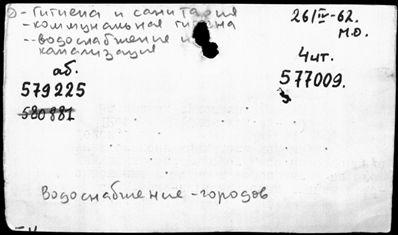 - гигиена и санитария
- коммунальная гигиена
-- водоснабжение и
канализация
26/IV-62.
М.О.
аб.
579225
580881
4 чит.
577009.
Водоснабжение - городов